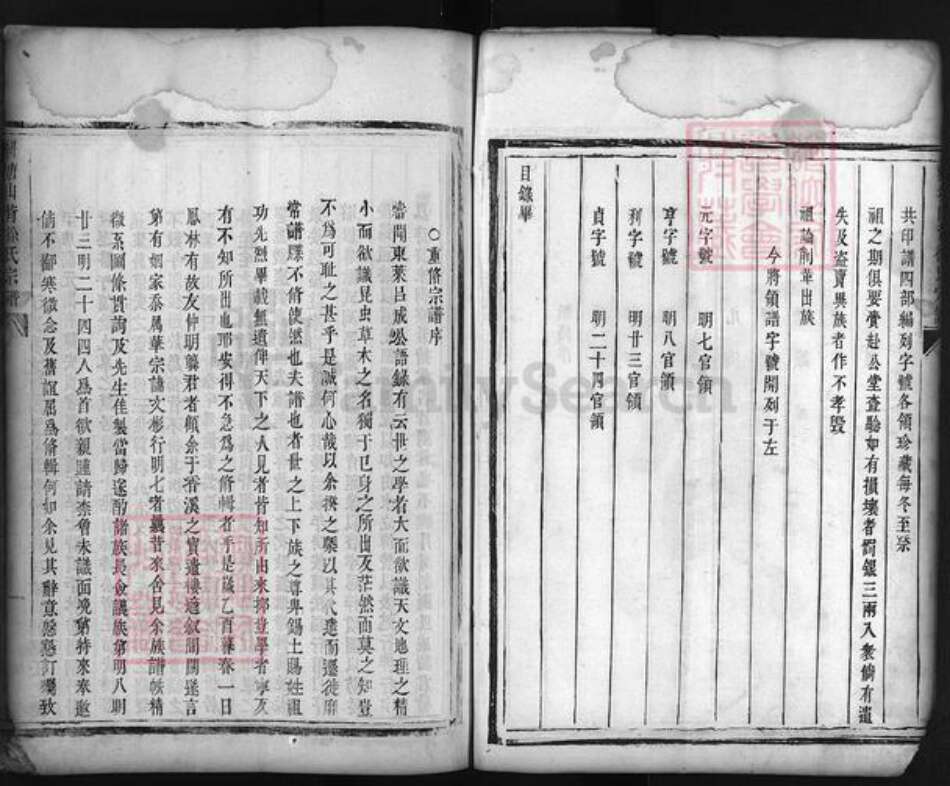 共印譜四部編列字號各領珍藏每冬至祭
祖之期俱要賫赴公堂查驗如有損壞者罰銀三兩入衆倘有遺
失及盜賣異族者作不孝毀
祖論削革出族
今將領譜字號開列于左
元字號 明七官領
亨字號 明八官領
利字號 明廿三官領
貞字號 明二十四官領
目錄畢
○重脩宗譜序
嘗聞東萊呂成公語錄有云世之學者大而欲識天文地理之精
小而欲識昆虫草木之名獨于己身之所出反茫然而莫之知豈
不為可耻之甚乎是誠何心哉以余揆之槩以其代遠而遷徙靡
常譜牒不脩使然也夫譜也者世之上下族之尊卑錫土賜姓祖
功先烈畢載無遺俾天下之人見者皆知所由來抑豈學者寧反
有不知所出也耶安得不急為之脩輯者乎是歲乙百暮春一日
鳳林有故友仲明龔君者頫余于香溪之寶遺樓邀叙間闊遂言
第有姻家泰屬華宗諱文彬行明七者曩昔來舍見余族譜帙精
微系圖條貫詢及先生佳製當歸遂酌諸族長僉議族第明八則
廿三明二十四四人為首欲親踵請柰魯未識面晚第特來奉邀
倘不鄙寒微念及舊誼屈為脩輯何如余見其辭意懇懇訂藁致
FamilySearch